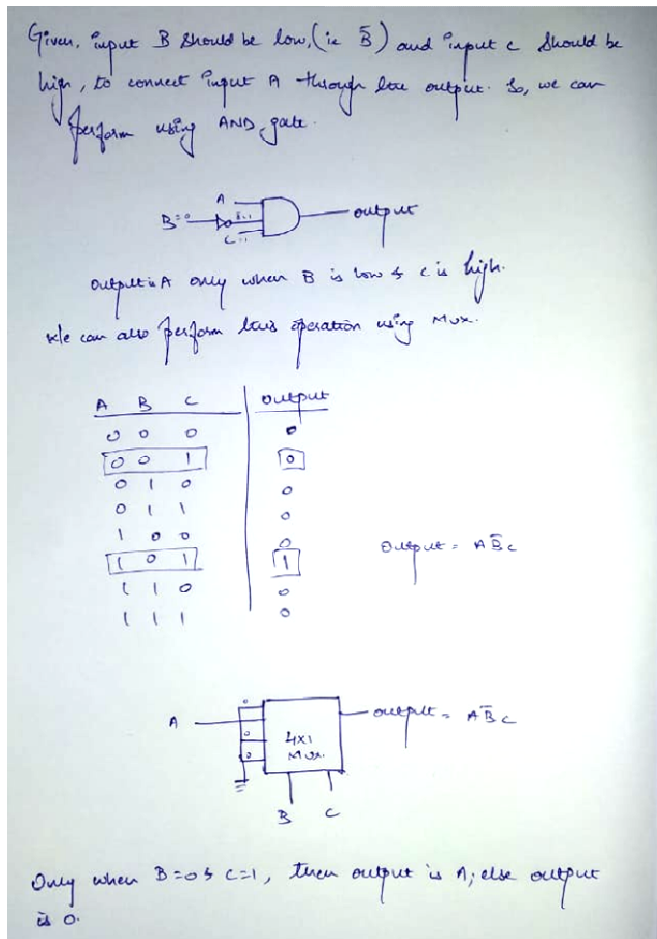 Given, input B should be low, (ie B̄) and input c should be
high, to connect input A through the output. So, we can
perform using AND gate.
A
B=0
C=1
output
output is A only when B is low & c is high.
We can also perform this operation using Mux.
A B C output
0 0 0 0
0 0 1 0
0 1 0 0
0 1 1 0
1 0 0 0
1 0 1 1
1 1 0 0
1 1 1 0
Output = AB̄C
0
A
0
0
4x1
Mux.
output = AB̄C
B C
Only when B=0 & C=1, then output is A; else output
is 0.